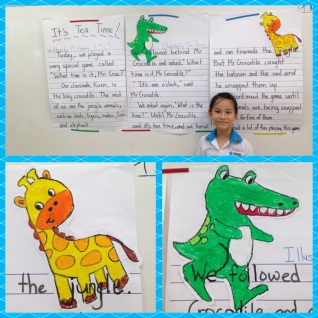 It's Tea Time!
Today, we played a
very special game called
"What time is it, Mr Croc?"
Our classmate, Kieran, is
the king crocodile. The rest
of us are the jungle animals,
and elephant.
followed behind Mr
Crocodile and asked, "What
time is it, Mr Crocodile?"
"It's one o'clock," said
Mr Crocodile.
We asked again, "What is the
time?" Until Mr Crocodile
said, it's tea time, and we turned
and ran towards the jungle.
But Mr Crocodile caught
the baboon and the
he snapped them up.
continued the game until
animals are being snapped
a lot of fun playing this game
the jungle.
Illus
We followed
Crocodile and